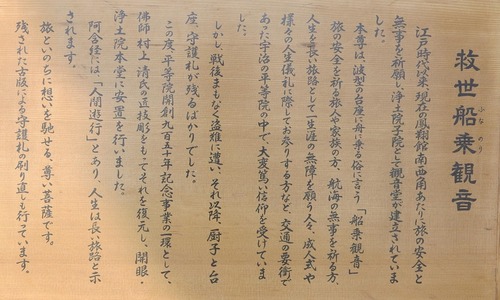 救世船乗観音
ふなのり
江戸時代以来、現在の鳳翔館南西角あたりに旅の安全と
無事を祈願し、浄土院子院として観音堂が建立されていま
した。
本尊は、波型の台座舟に乗る俗に言う「船乗観音」
旅の安全を祈る旅人や家族の方、航海の無事を祈る方、
人生を長い旅路として一生涯の無障を願う人々、成人式や
様々の人生儀礼に際してお参りする方など、交通の要衝で
あった宇治の平等院の中で、大変篤い信仰を受けていま
した。
しかし、戦後まもなく盗難に遭い、それ以降、厨子と台
座、守護札が残るばかりでした。
この度、平等院開創九百五十年記念事業の一環として、
佛師村上清氏の直技彫をもってそれを復元し、開眼・
浄土院本堂に安置を行いました。
阿含経には、「人間遊行」とあり、人生は長い旅路と示
されます。
旅といのちに想いを馳せる、尊い菩薩です。
残された古版による守護札の刷り直しも行っています。